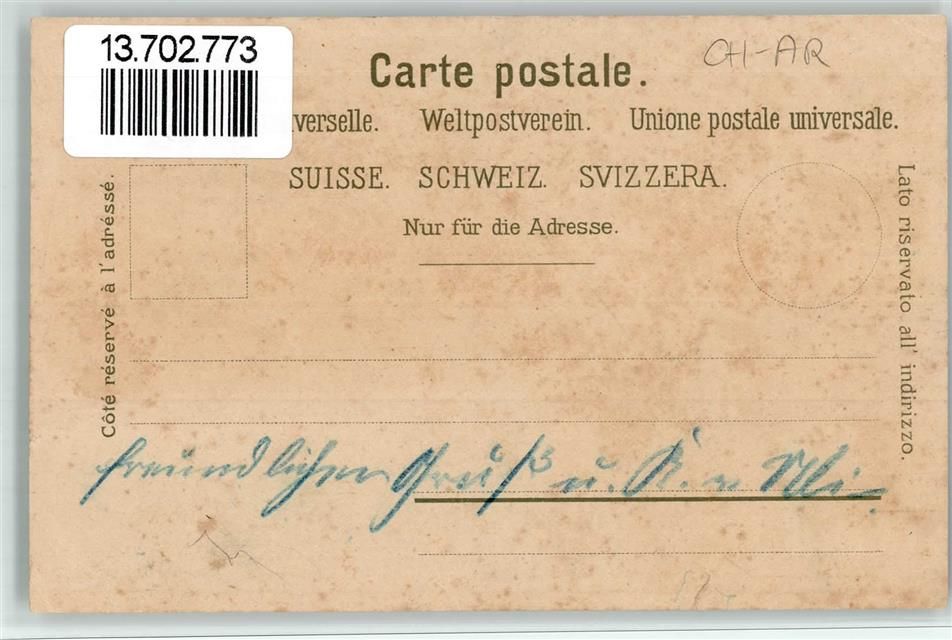 13.702.773
CH-AR
Carte postale.
verselle. Weltpostverein. Unione postale universale.
SUISSE. SCHWEIZ. SVIZZERA.
Nur für die Adresse.
Côté réservé à l'adréssé.
Lato riservato all' indirizzo.
freundlichen Gruß u. K.